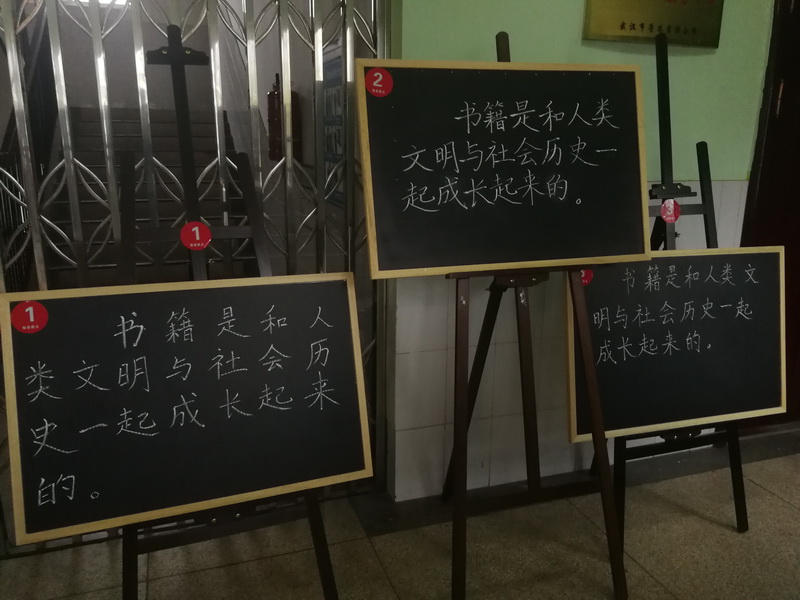 1
1
书籍是和人
类文明与社会历
史一起成长起来
的。
2
书籍是和人类
文明与社会历史一
起成长起来的。
3
书籍是和人类文
明与社会历史一起
成长起来的。